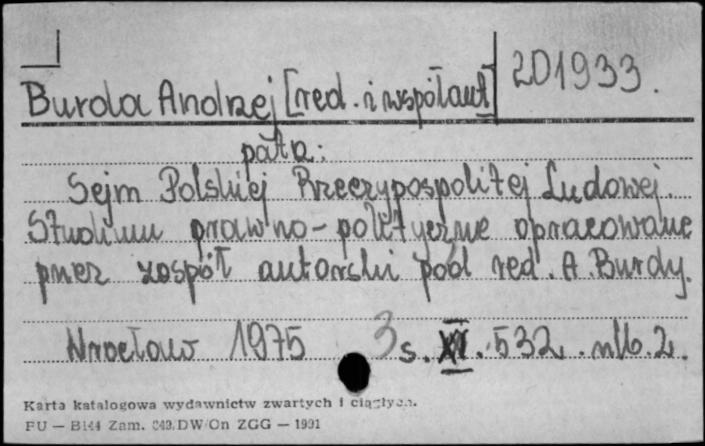 Burda Andrzej [red. i współaut] 201933.
patrz:
Sejm Polskiej Rzeczypospolitej Ludowej.
Studium prawno-polityczne opracowane
przez zespół autorski pod red. A. Burdy.
Wrocław 1975 3 s. XI. 532. nlb. 2.
Karta katalogowa wydawnictw zwartych i ciągłych.
FU — Bi44 Zam. 349/DW/On ZGG — 1991